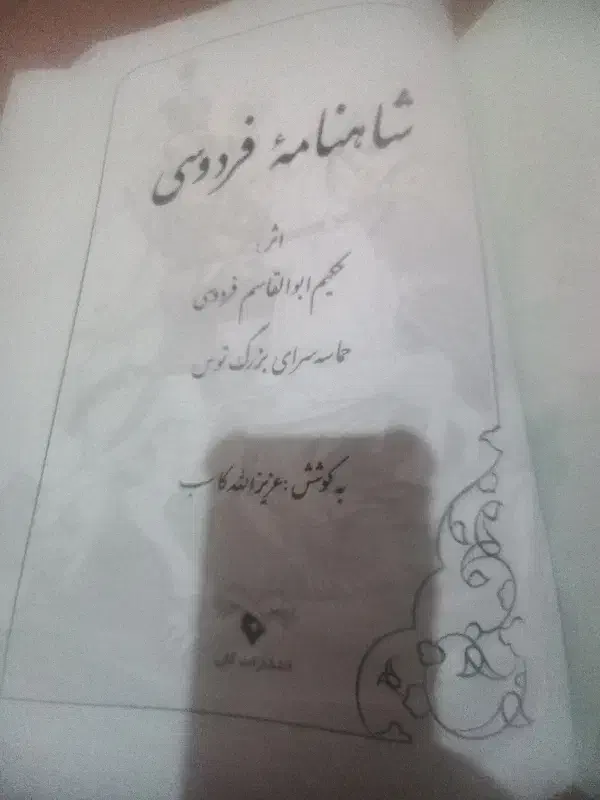 شاهنامهٔ فردوسی
اثر:
حکیم ابوالقاسم فردوسی
حماسه سرای بزرگ توس
به کوشش: عزیزالله کاسب
انتشارات